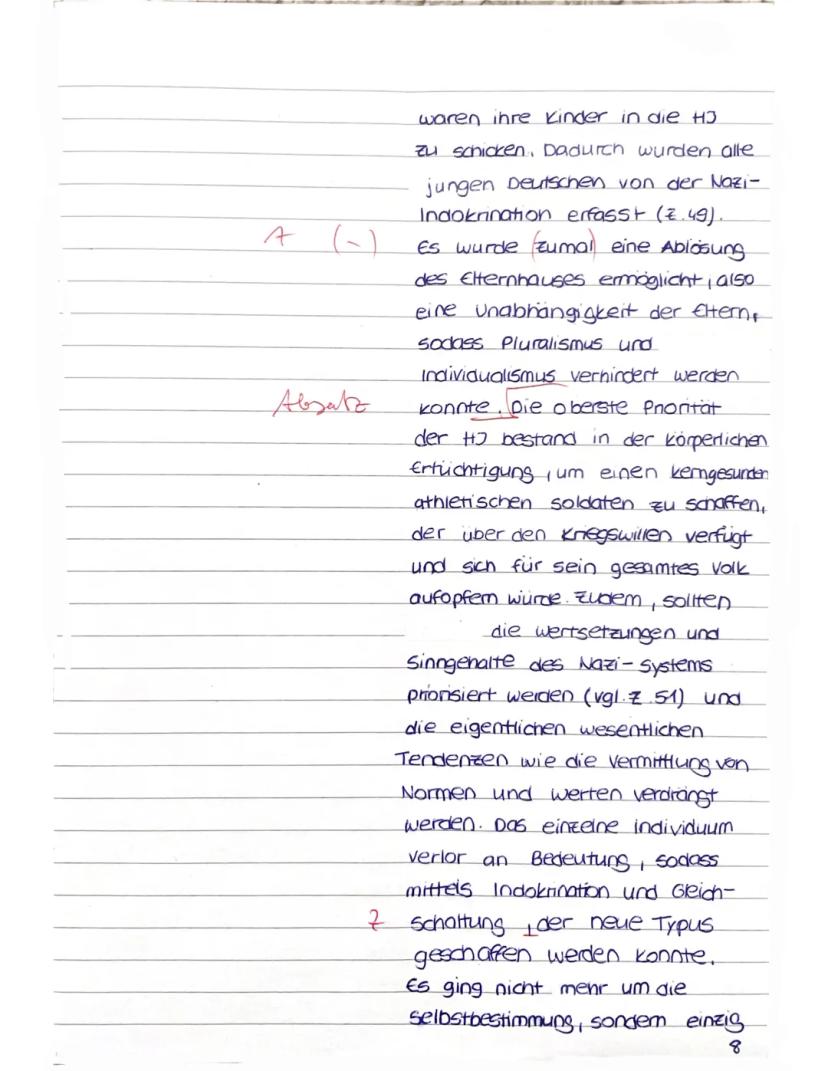 waren ihre Kinder in die HJ
zu schicken. Dadurch wurden alle
jungen Deutschen von der Nazi-
Indokrination erfasst (Z. 49).
A (-) Es wurde (zumal) eine Ablösung
des Elternhauses ermöglicht, also
eine Unabhängigkeit der Eltern,
sodass Pluralismus und
Individualismus verhindert werden
Absatz konnte. Die oberste Priorität
der HJ bestand in der körperlichen
Ertüchtigung, um einen kerngesunden
athletischen soldaten zu schaffen,
der über den Kriegswillen verfügt
und sich für sein gesamtes Volk
aufopfern würde. Zudem, sollten
die wertsetzungen und
Sinngehalte des Nazi-Systems
priorisiert werden (vgl. Z. 51) und
die eigentlichen wesentlichen
Tendenzen wie die Vermittlung von
Normen und Werten verdrängt
werden. Das einzelne individuum
verlor an Bedeutung, sodass
mittels Indokrination und Gleich-
Z schaltung, der neue Typus
geschaffen werden konnte.
Es ging nicht mehr um die
Selbstbestimmung, sondern einzig
8